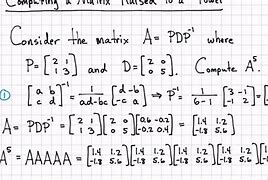 Computing a Matrix Raised to a Power
Consider the matrix A = PDP⁻¹ where
P = [2 1; 1 3] and D = [2 0; 0 5]. Compute A⁵.
① [a b; c d]⁻¹ = 1/(ad-bc) [d -b; -c a] ⇒ P⁻¹ = 1/(6-1) [3 -1; -1 2]
A = PDP⁻¹ = [2 1; 1 3] [2 0; 0 5] [0.6 -0.2; -0.2 0.4] = [1.4 1.2; -1.8 5.6]
A⁵ = AAAAA = [1.4 1.2; -1.8 5.6] [1.4 1.2; -1.8 5.6] [1.4 1.2; -1.8 5.6] [1.4 1.2; -1.8 5.6]